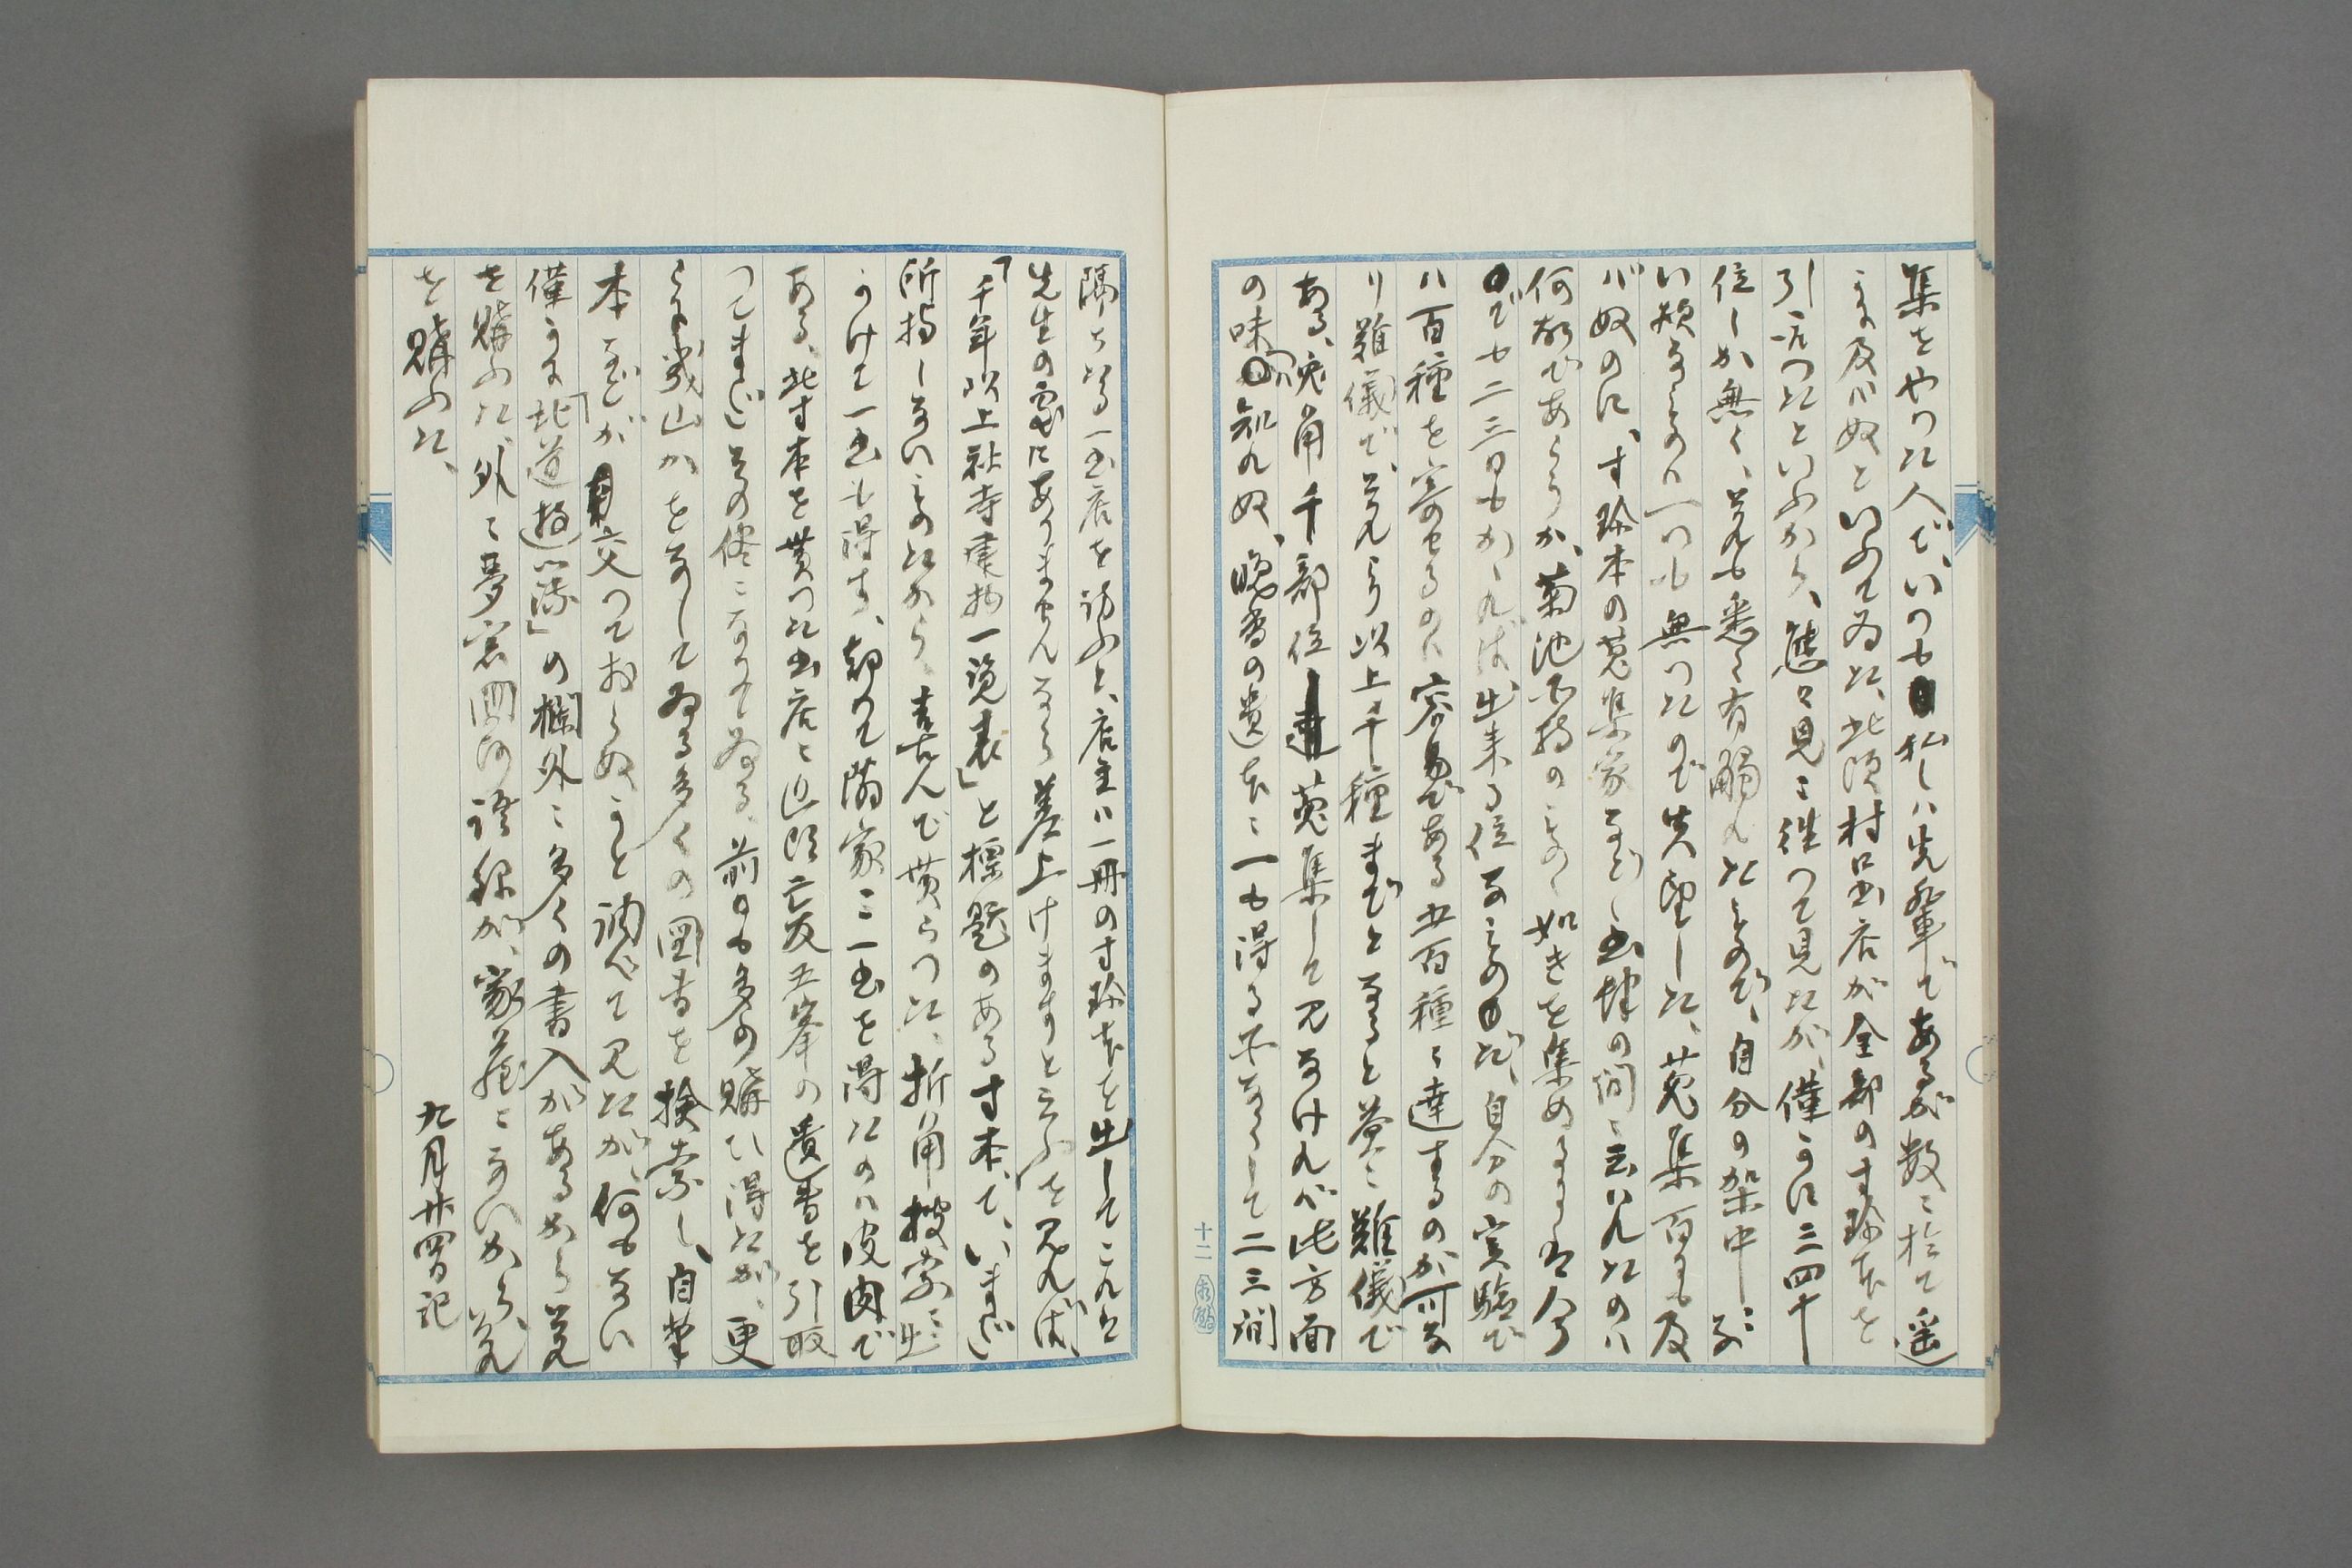 集をやつた人で、いつも私しハ先輩であるが数に於て遥
かに及バぬといつてゐた、此頃村口書店が全部の寸珍本を
引試つたといふから、態々見に往つて見たが、僅かに三四十
位しか無く、それも悉く有觸れたもので、自分の架中に無
い類なものハ一つも無つたので失望した、蒐集百にも及
バぬのに、寸珍本の蒐集家など、書肆の間に云ハれたのハ
何故であらうか、菊池不持のもの、如きを集めるなら今
でも二三日もかゝれば出来る位なものだ、自分の実験で
ハ百種を寄せるのハ容易である五百種に達するのが可な
り難儀で、それより以上千種までとなると益々難儀で
ある、兎角千部位蒐集して見なければ此方面
の味ハ知れぬ、晩香の遺本に一も得る所なくして二三間
隔たる一書店を訪ふと、店主ハ一冊の寸珍本を出してこれは
先生の家にありませんなら差上げますと云ふを見れば、
「千年以上社寺建物一覧表」と標題のある寸本で、いまだ
所持しないものだから、喜んで貰らつた、折角捜索に出
かけて一書も得す、却つて隣家に一書を得たのハ皮肉で
ある、此寸本を貰つた書店ハ近頃亡友五峯の遺書を引取
つてまだその侭になつてゐる、前日も多少購ひ得たが、更
らに戦山かをなしてゐる多くの図書を検索し、自筆
本などが交つておらぬかと調べて見たが、何もない
僅かに「北道遊簿」の欄外に多くの書入があるからそれ
を購ふた、外に夢窓国師語録が、家蔵にないから、それ
を購ふた、
九月廿四日記
十二